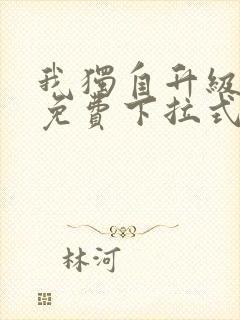 我獨自升級
免費下拉式
林河